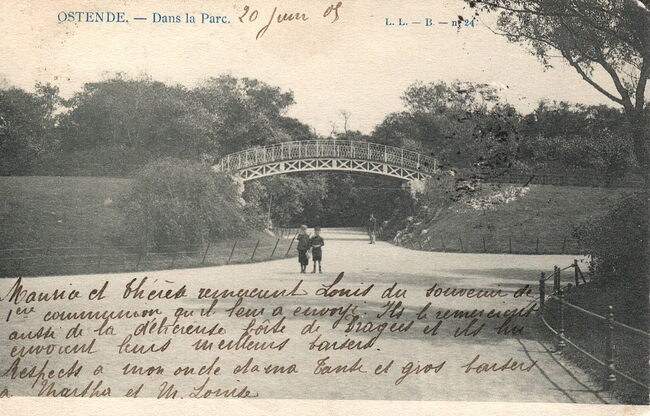 OSTENDE. — Dans la Parc.
20 Juin 05
L. L. — B — n° 24
Maurice et Thérèse remercient Louis du souvenir de
1ère communion qu'il leur a envoyé. Ils le remercient
aussi de la délicieuse boite de Dragées et ils lui
envoient leurs meilleurs baisers.
Respects à mon oncle et à ma Tante et gros baisers
à Martha et M. Louise